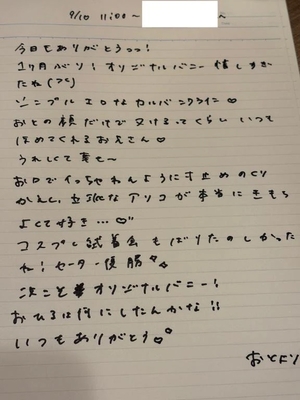 9/10 11:00〜 へ
今日もありがとうっっ!
1ヶ月バリ! オリジナルバニー 惜しすぎ
たね
シンプル エロな カルバンクライン♡
おとの顔だけで ヌけるってくらい いつも
ほめてくれるお兄さん♡
うれしくて幸せ〜
お口でイっちゃわんように寸止めのくり
かえし、立派なアソコが本当にきもち
よくて好き…♡
コスプレ試着会もばりたのしかった
ね! セーター優勝
次こそオリジナルバニー!
おひるは何にしたんかな!!
いつもありがとう
おとより